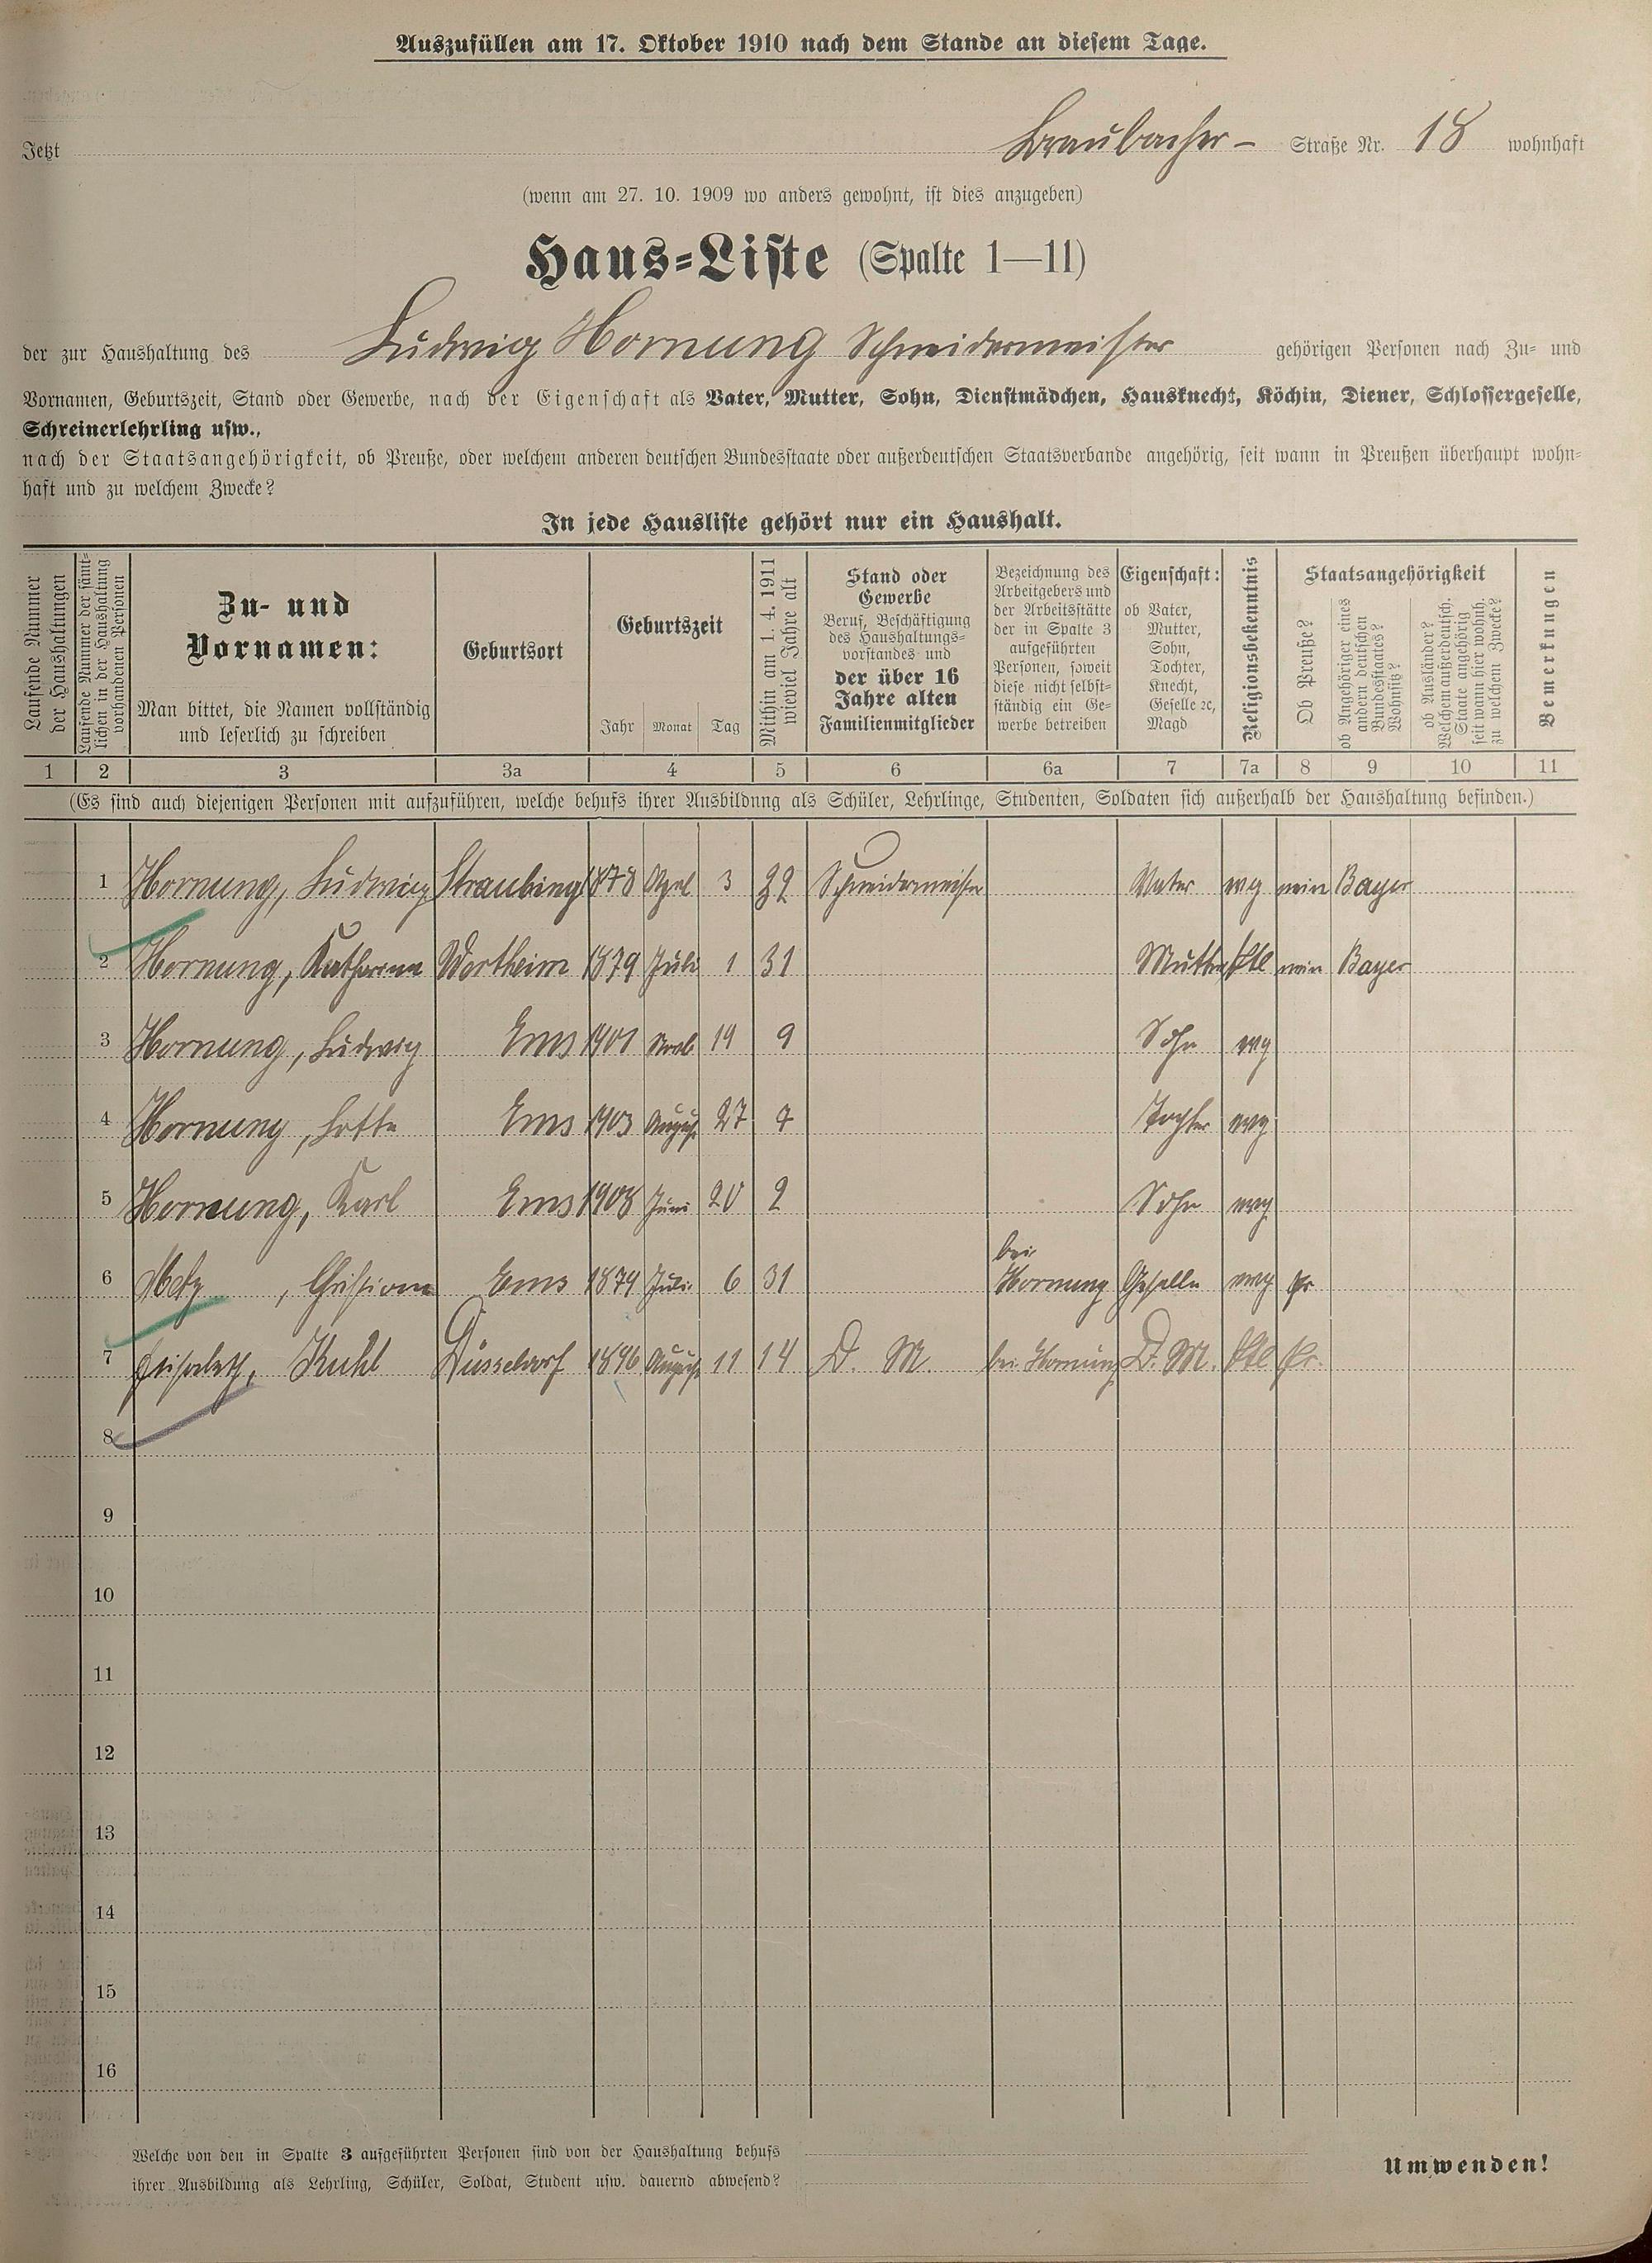 Auszufüllen am 17. Oktober 1910 nach dem Stande an diesem Tage.
Jetzt Braubacher- Straße Nr. 18 wohnhaft
(wenn am 27. 10. 1909 wo anders gewohnt, ist dies anzugeben)
Haus-Liste (Spalte 1—11)
der zur Haushaltung des Ludwig Hornung Schneidermeister gehörigen Personen nach Zu- und
Vornamen, Geburtszeit, Stand oder Gewerbe, nach der Eigenschaft als Vater, Mutter, Sohn, Dienstmädchen, Hausknecht, Köchin, Diener, Schlossergeselle,
Schreinerlehrling usw.,
nach der Staatsangehörigkeit, ob Preuße, oder welchem anderen deutschen Bundesstaate oder außerdeutschen Staatsverbande angehörig, seit wann in Preußen überhaupt wohn-
haft und zu welchem Zwecke?
In jede Hausliste gehört nur ein Haushalt.
Laufende Nummer
der Haushaltungen
Laufende Nummer der sämt-
lichen in der Haushaltung
vorhandenen Personen
Zu- und
Vornamen:
Man bittet, die Namen vollständig
und leserlich zu schreiben
Geburtsort
Geburtszeit
Jahr Monat Tag
Mithin am 1. 4. 1911
wieviel Jahre alt
Stand oder
Gewerbe
Beruf, Beschäftigung
des Haushaltungs-
vorstandes und
der über 16
Jahre alten
Familienmitglieder
Bezeichnung des
Arbeitgebers und
der Arbeitsstätte
der in Spalte 3
aufgeführten
Personen, soweit
diese nicht selbst-
ständig ein Ge-
werbe betreiben
Eigenschaft:
ob Vater,
Mutter,
Sohn,
Tochter,
Knecht,
Geselle ꝛc,
Magd
Religionsbekenntnis
Staatsangehörigkeit
Ob Preuße?
ob Angehöriger eines
andern deutschen
Bundesstaates?
Wohnsitz?
ob Ausländer?
Welchem außerdeutsch.
Staate angehörig
seit wann hier wohnh.
zu welchem Zwecke?
Bemerkungen
1 2 3 3a 4 5 6 6a 7 7a 8 9 10 11
(Es sind auch diejenigen Personen mit aufzuführen, welche behufs ihrer Ausbildung als Schüler, Lehrlinge, Studenten, Soldaten sich außerhalb der Haushaltung befinden.)
1 Hornung, Ludwig Straubing 1878 April 3 32 Schneidermeister Vater evg nein Bayer
2 Hornung, Katharina Wertheim 1879 Juli 1 31 Mutter ktl nein Bayer
3 Hornung, Ludwig Ems 1901 19 9 Sohn evg
4 Hornung, Lotte Ems 1903 August 27 7 Tochter evg
5 Hornung, Karl Ems 1908 Juni 20 2 Sohn evg
6 Metz, Ems 1879 Juli 6 31 bei Hornung Geselle evg Pr.
7 Kuhl Düsseldorf 1896 August 11 14 D. M. bei Hornung D. M. ktl Pr.
8
9
10
11
12
13
14
15
16
Welche von den in Spalte 3 aufgeführten Personen sind von der Haushaltung behufs
ihrer Ausbildung als Lehrling, Schüler, Soldat, Student usw. dauernd abwesend?
Umwenden!